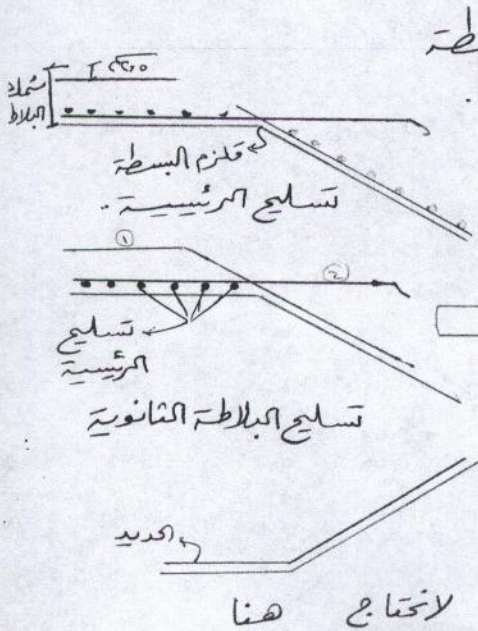 طة
سماكة
البلاطة
قلزم البسطة
تسليح الرئيسية.
① ②
تسليح
الرئيسية
تسليح البلاطة الثانوية
الحديد
لانحتاج هنا